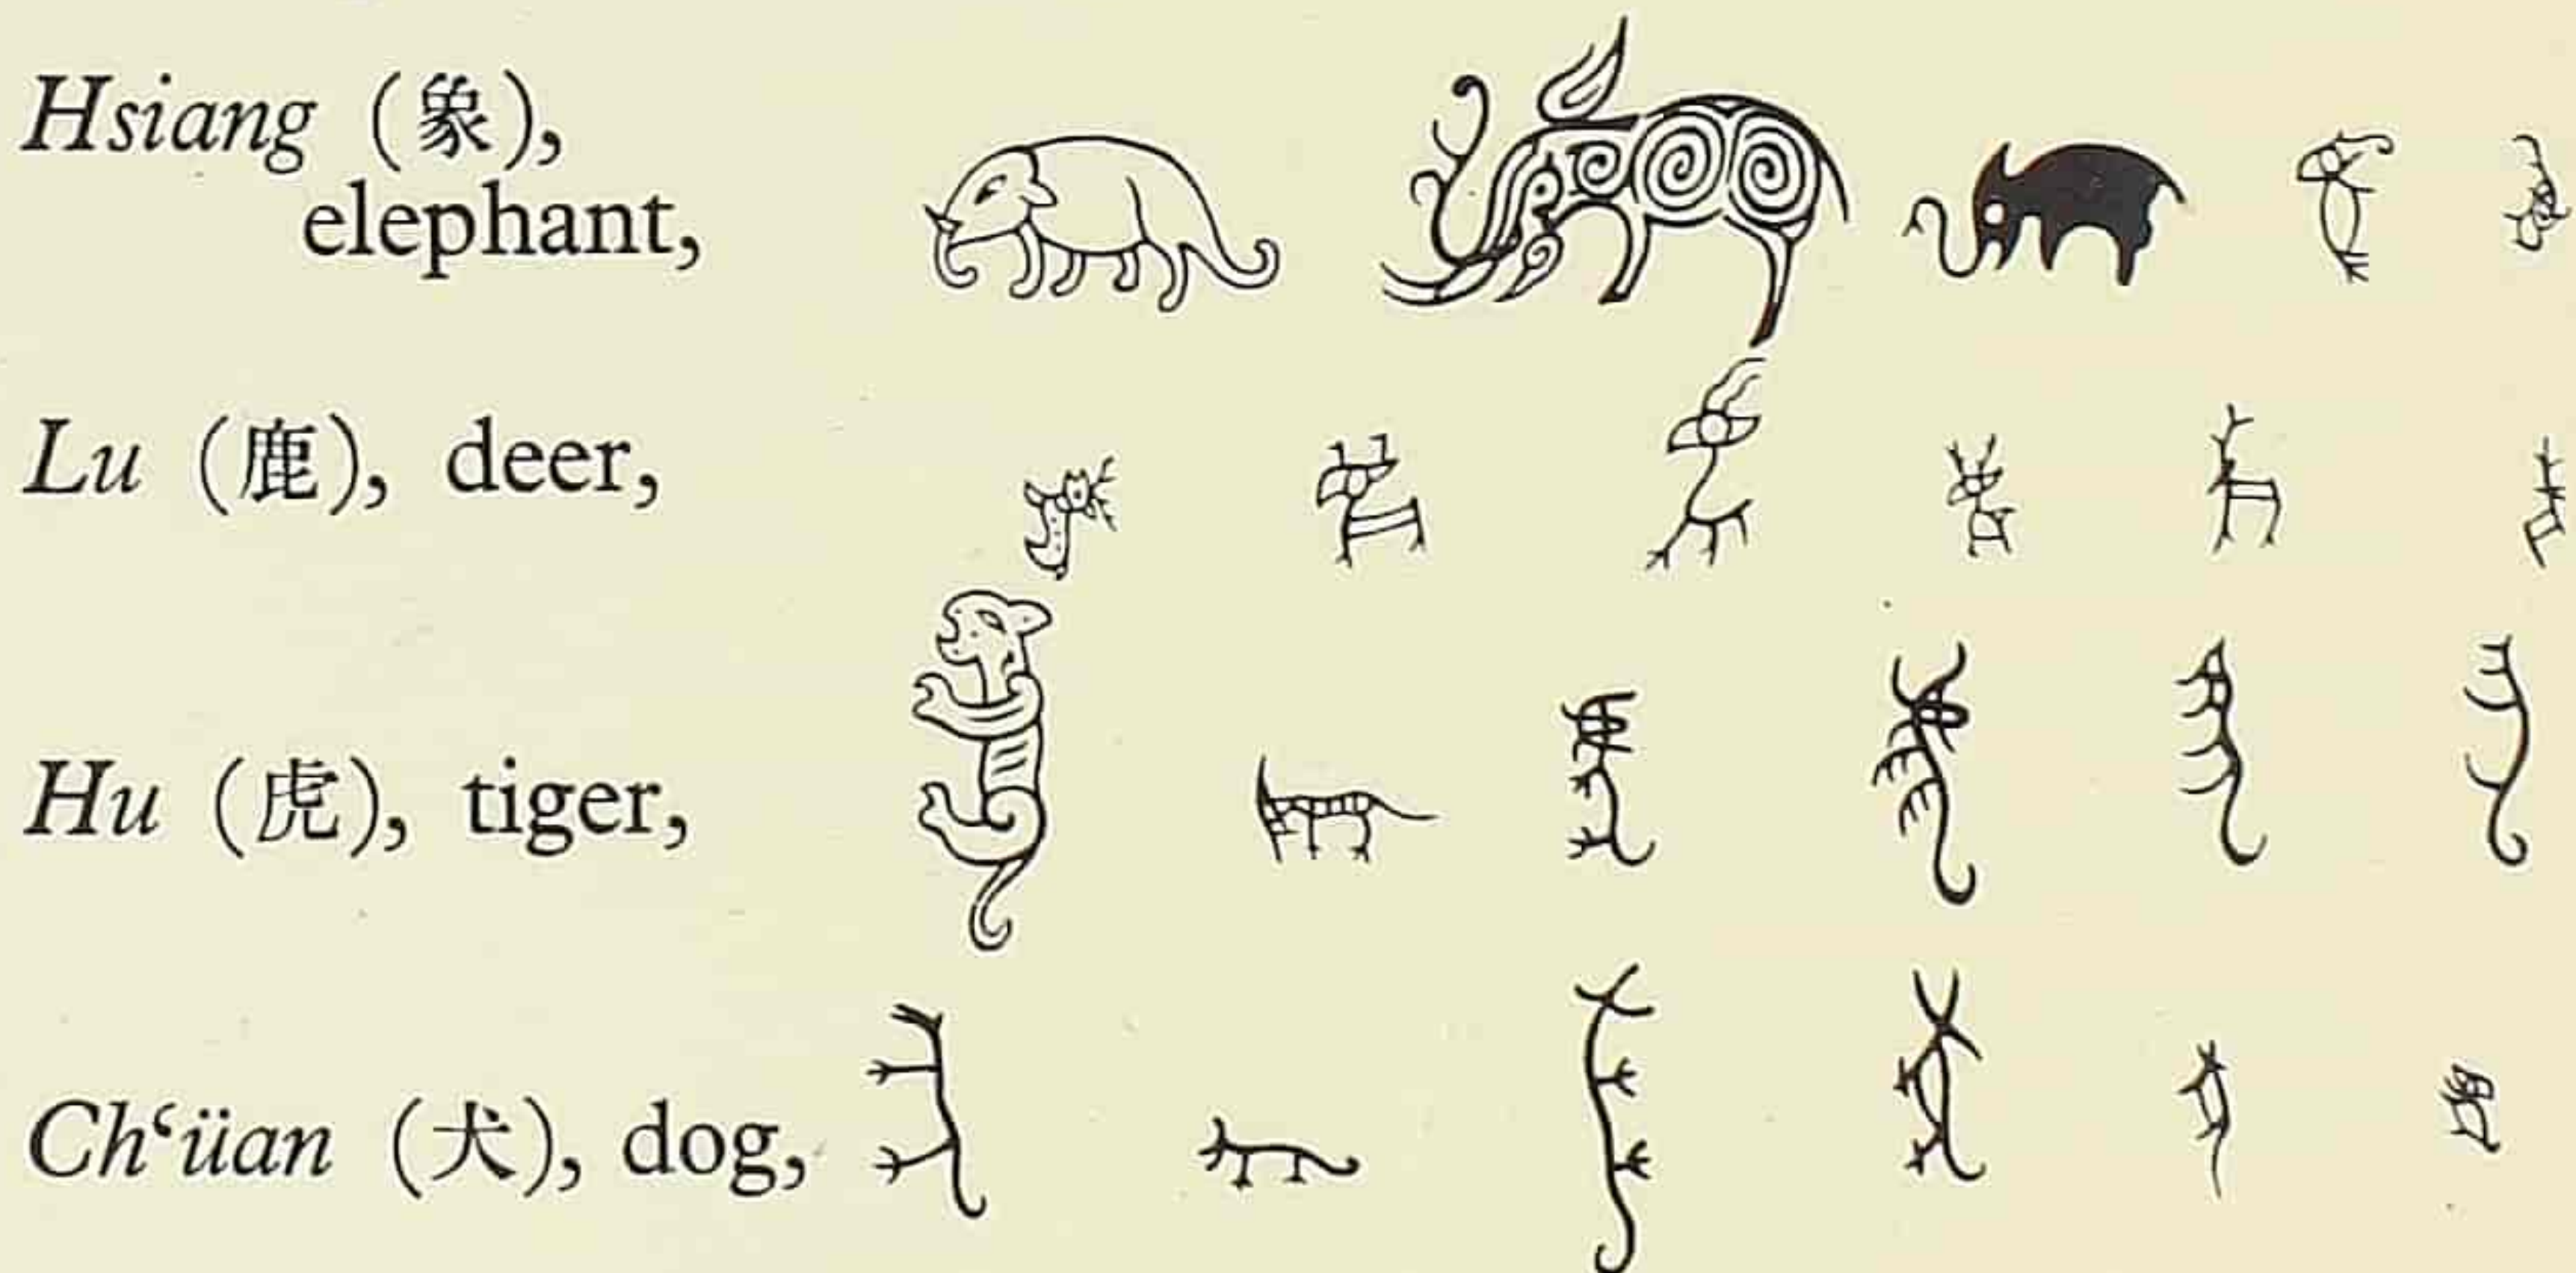 Hsiang (象),
elephant,
Lu (鹿), deer,
Hu (虎), tiger,
Ch‘üan (犬), dog,